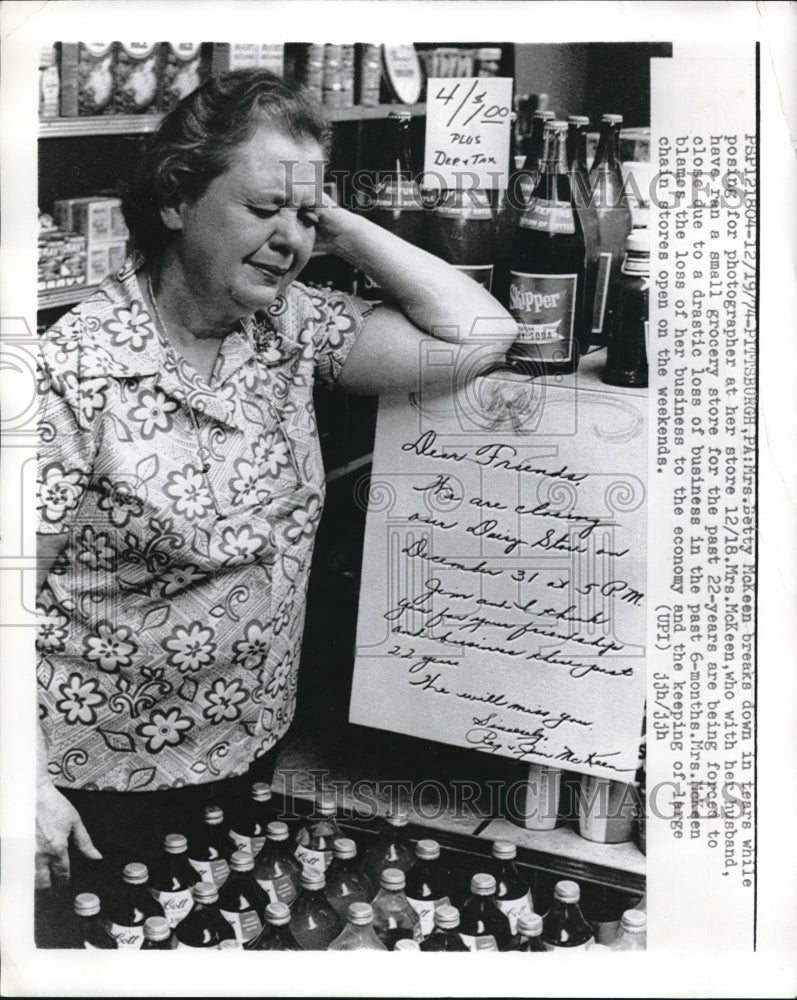 4/$1.00
PLUS
DEP. & TAX
Skipper
Dear Friends,
We are closing
our Dairy Store on
December 31 at 5 P.M.
Jim and I thank
you for your friendship
and business these past
22 years
We will miss you.
Sincerely,
Peg & Jim McKeen
Cott
Cott
Cott
PSP121804-12/19/74-PITTSBURGH,PA:Mrs.Betty McKeen breaks down in tears while
posing for photographer at her store 12/18.Mrs.McKeen,who with her husband,
have ran a small grocery store for the past 22-years are being forced to
close due to a drastic loss of business in the past 6-months.Mrs.McKeen
blames the loss of her business to the economy and the keeping of large
chain stores open on the weekends.
(UPI) jjh/jjh
HISTORIC IMAGES
HISTORIC IMAGES
HISTORIC IMAGES
HISTORIC IMAGES